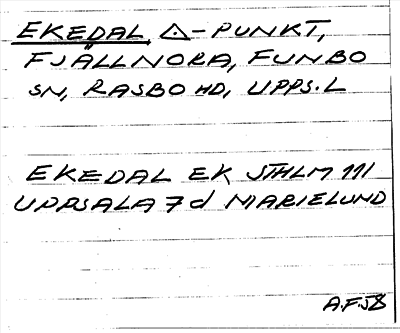 EKEDAL, △-PUNKT,
FJÄLLNORA, FUNBO
SN, RASBO HD, UPPS.L
EKEDAL EK STHLM 111
UPPSALA 7 d MARIELUND
A.F.58